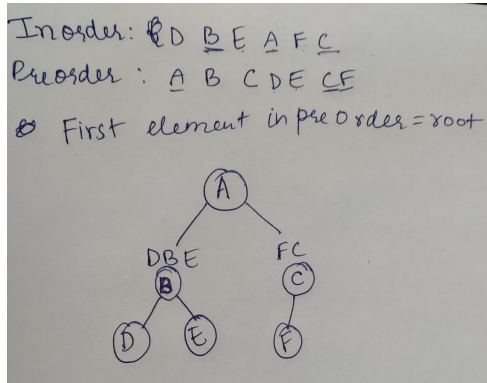 Inorder: D B E A F C
Preorder : A B C D E CF
First element in preOrder = root
A
DBE FC
B C
D E F